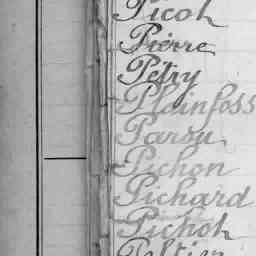 Picot
Pierre
Pétry
Plainfoss
Parsu
Pichon
Pichard
Pichot
Peltier